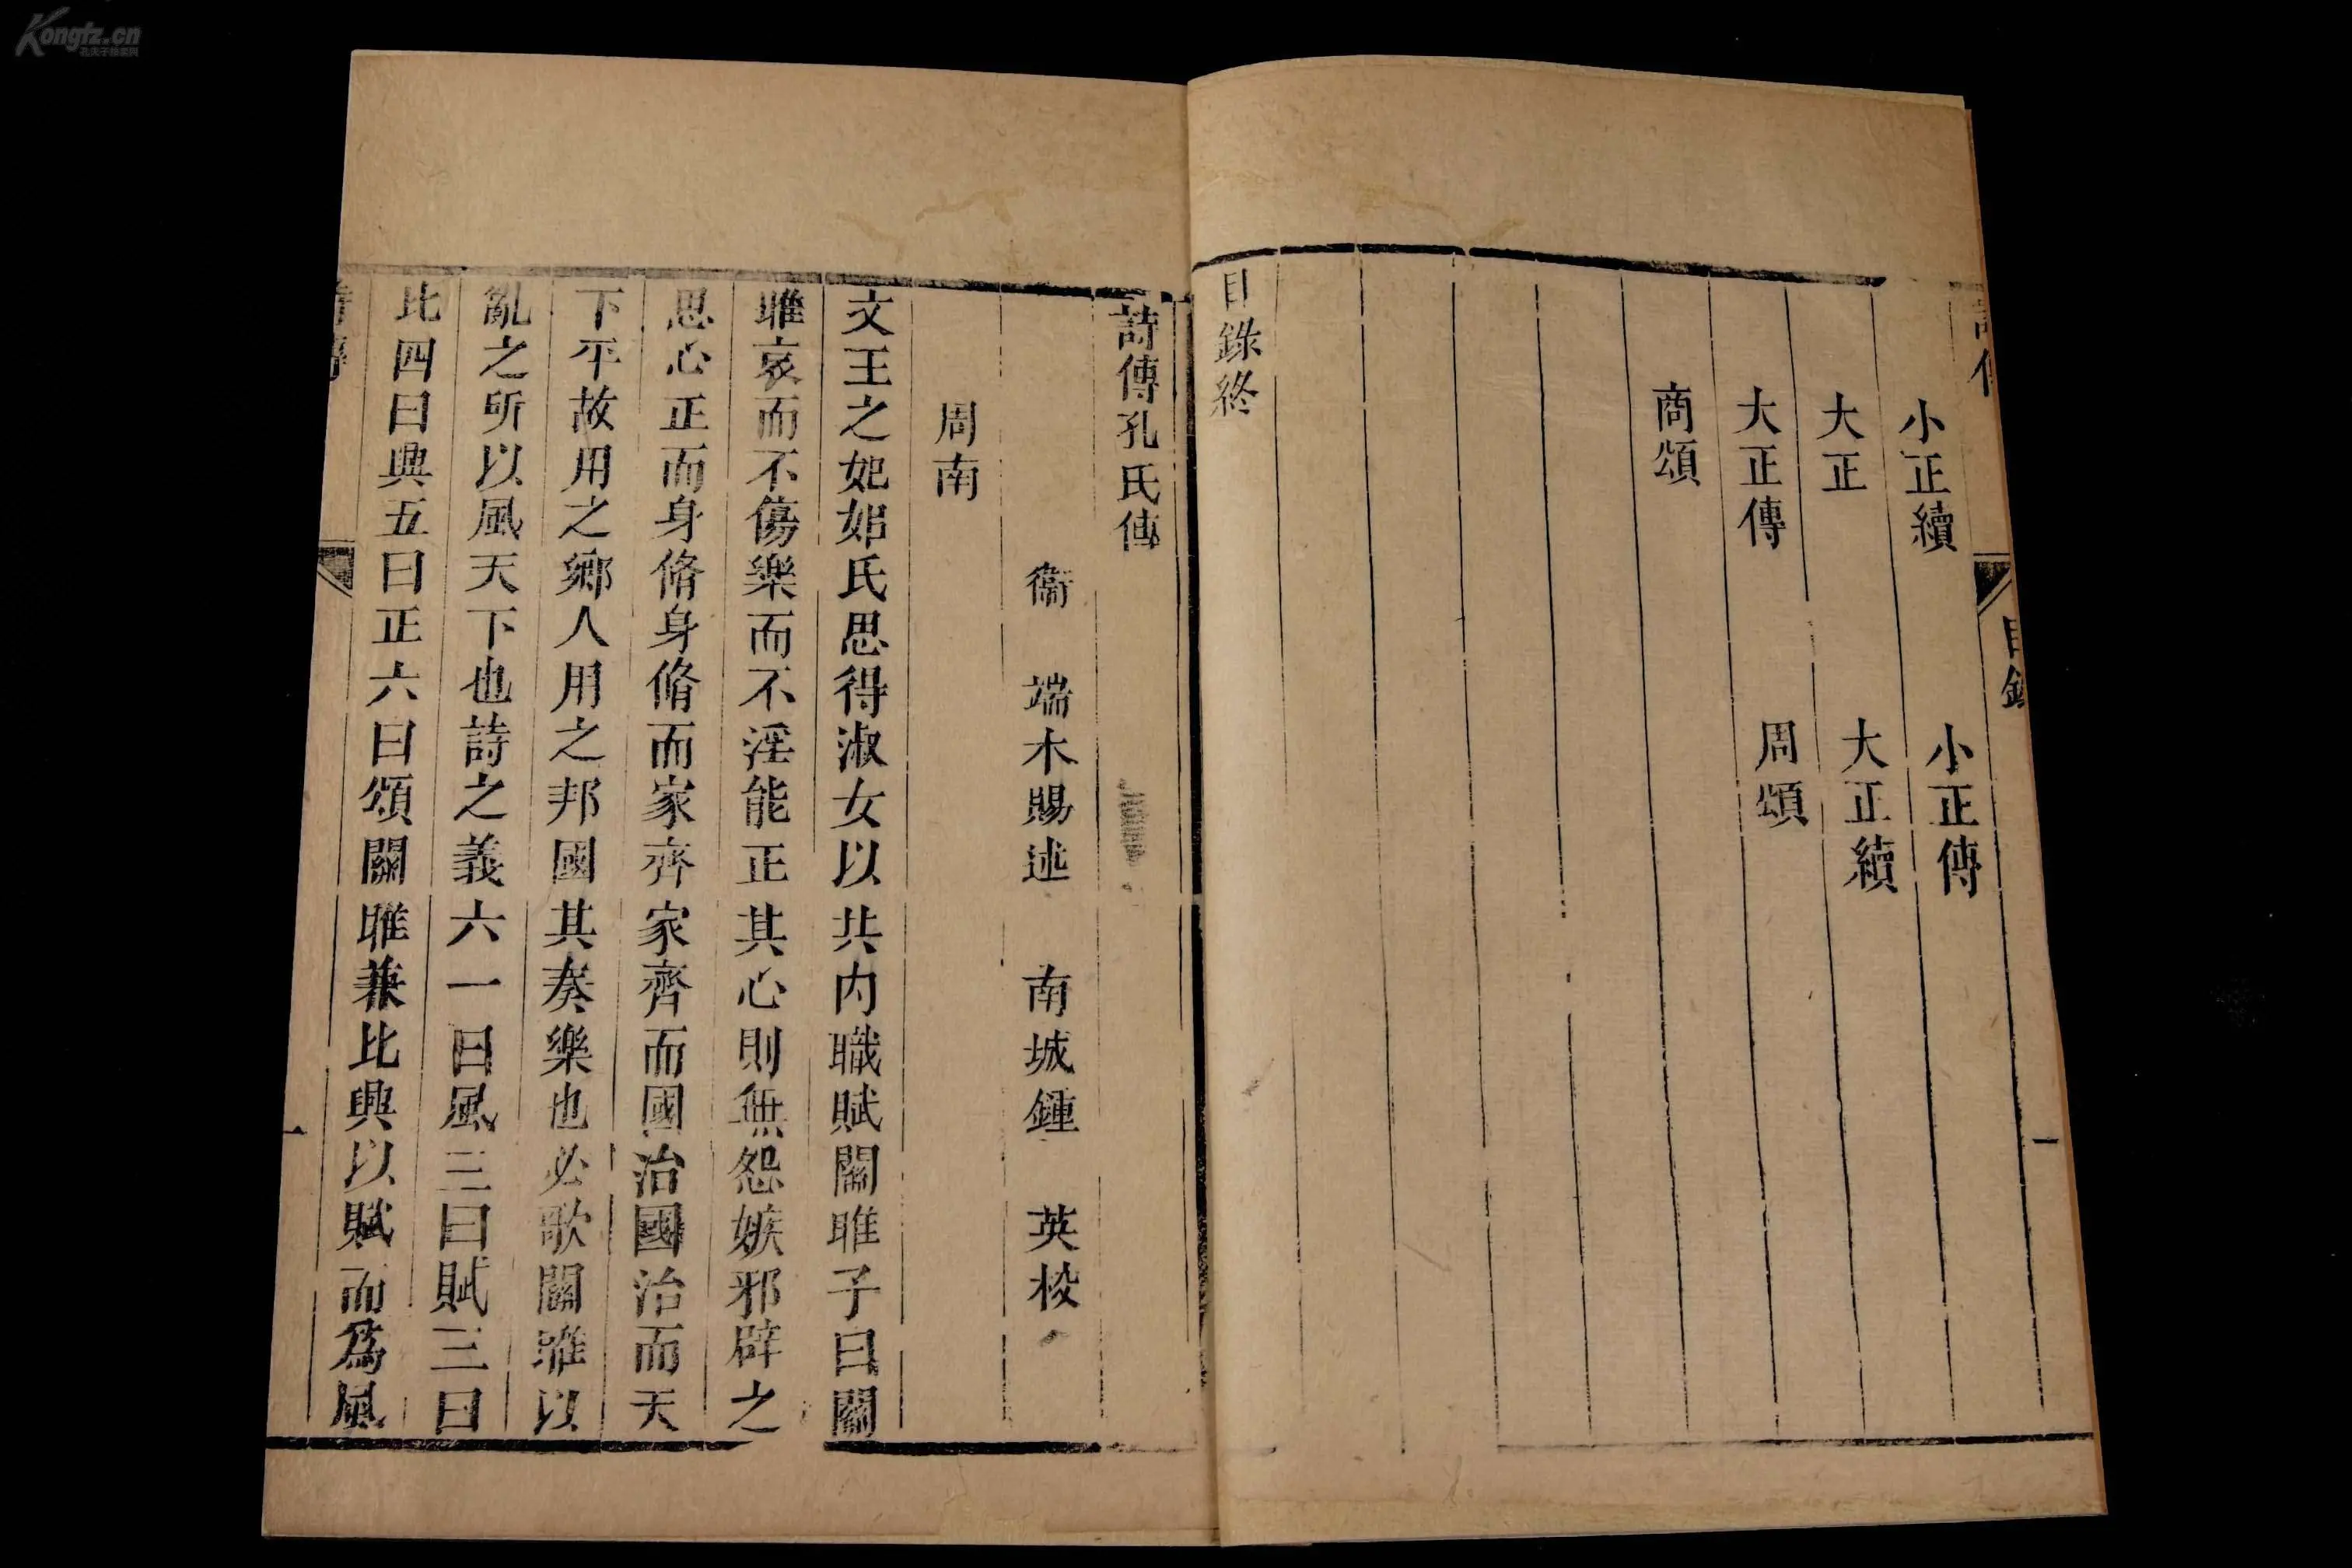 Kongfz.cn
小正續　小正傳
大正　大正續
大正傳　周頌
商頌
目錄終
詩傳孔氏傳
衞　端木賜述　南城鍾　英校
周南
文王之妃姒氏思得淑女以共内職賦關雎子曰關
雎哀而不傷樂而不淫能正其心則無怨嫉邪辟之
思心正而身脩身脩而家齊家齊而國治國治而天
下平故用之鄉人用之邦國其奏樂也必歌關雎以
亂之所以風天下也詩之義六一曰風二曰賦三曰
比四曰興五曰正六曰頌關雎兼比興以賦而爲風
一